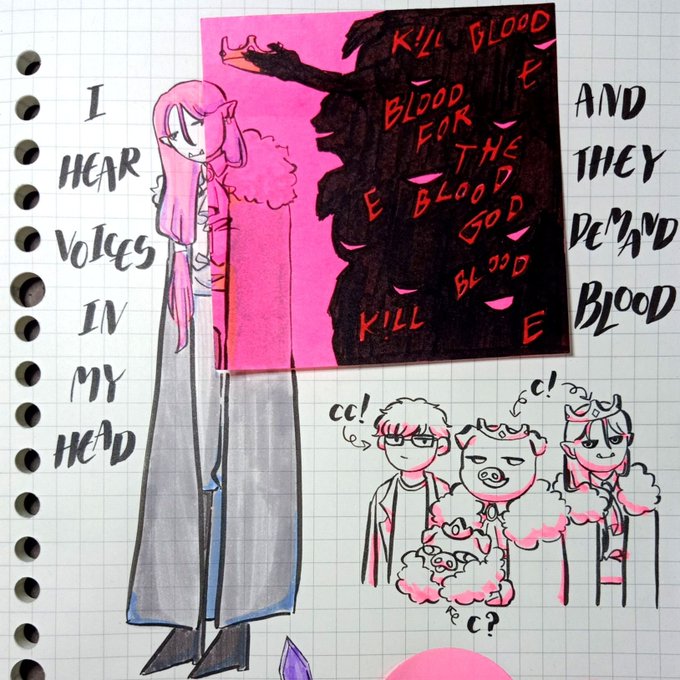 I
HEAR
VOICES
IN
MY
HEAD
KILL BLOOD
E
BLOOD
FOR
THE
E BLOOD
GOD
BLOOD
KILL E
AND
THEY
DEMAND
BLOOD
CC!
C!
C?